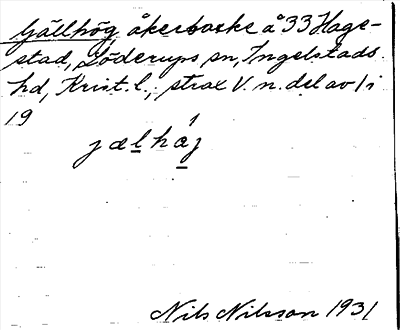 Gällhög åkerbacke å 33 Hage-
stad, Löderups sn, Ingelstads
hd, Krist. l., strax V. n. del av 1 i
19
jælhøj
Nils Nilsson 1931